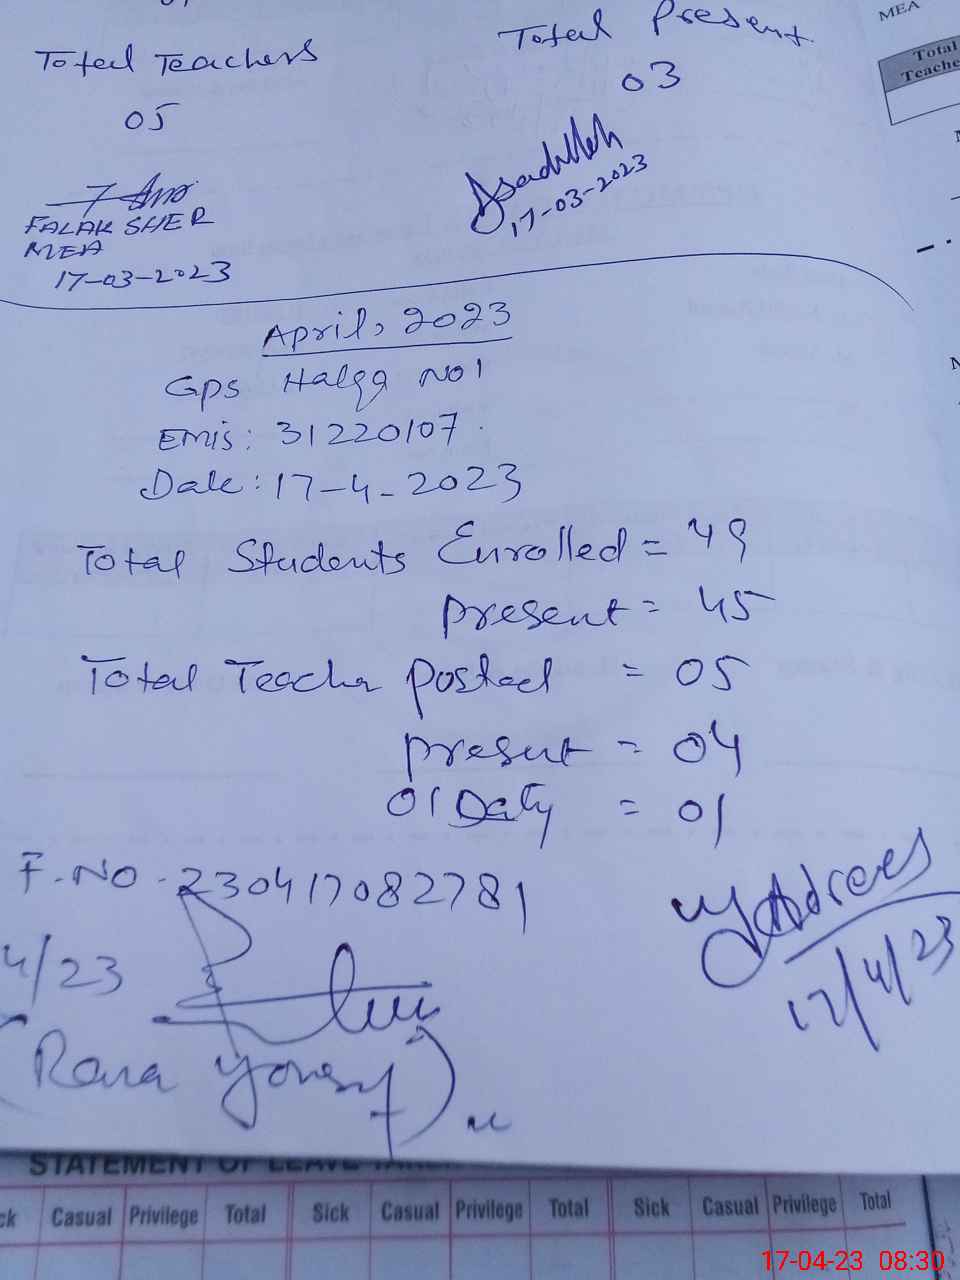 Total Teachers
Total Present
05
03
Asadullah
17-03-2023
FALAK SHER
MEA
17-03-2023
MEA
Total
Teache
April, 2023
GPS Halqa No 1
EMIS: 31220107.
Date: 17-4-2023
Total Students Enrolled = 49
present = 45
Total Teacher Posted = 05
present = 04
01 Duty = 01
F.NO - 230417082781
4/23
17/4/23
(Rana Yousuf)
STATEMENT OF LEAVE TAKEN
ck Casual Privilege Total Sick Casual Privilege Total Sick Casual Privilege Total
17-04-23 08:30